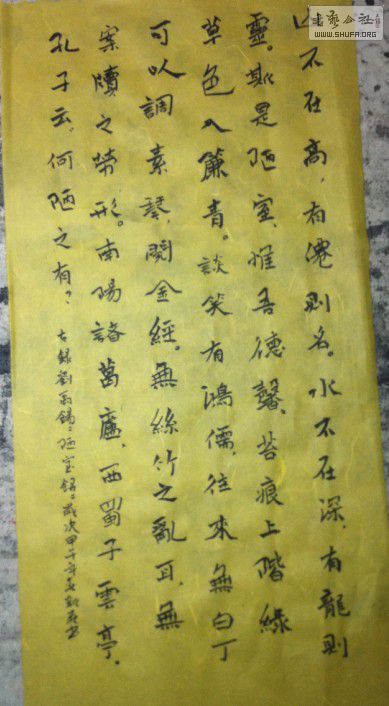 山不在高，有僊則名。水不在深，有龍則
靈。斯是陋室，惟吾德馨。苔痕上階綠
草色入簾青。談笑有鴻儒，往來無白丁
可以調素琴，閱金經。無絲竹之亂耳，無
案牘之勞形。南陽諸葛廬，西蜀子雲亭。
孔子云：何陋之有？
古錄劉禹錫。陋室銘。歲次甲午年
書藝公社
WWW.SHUFA.ORG